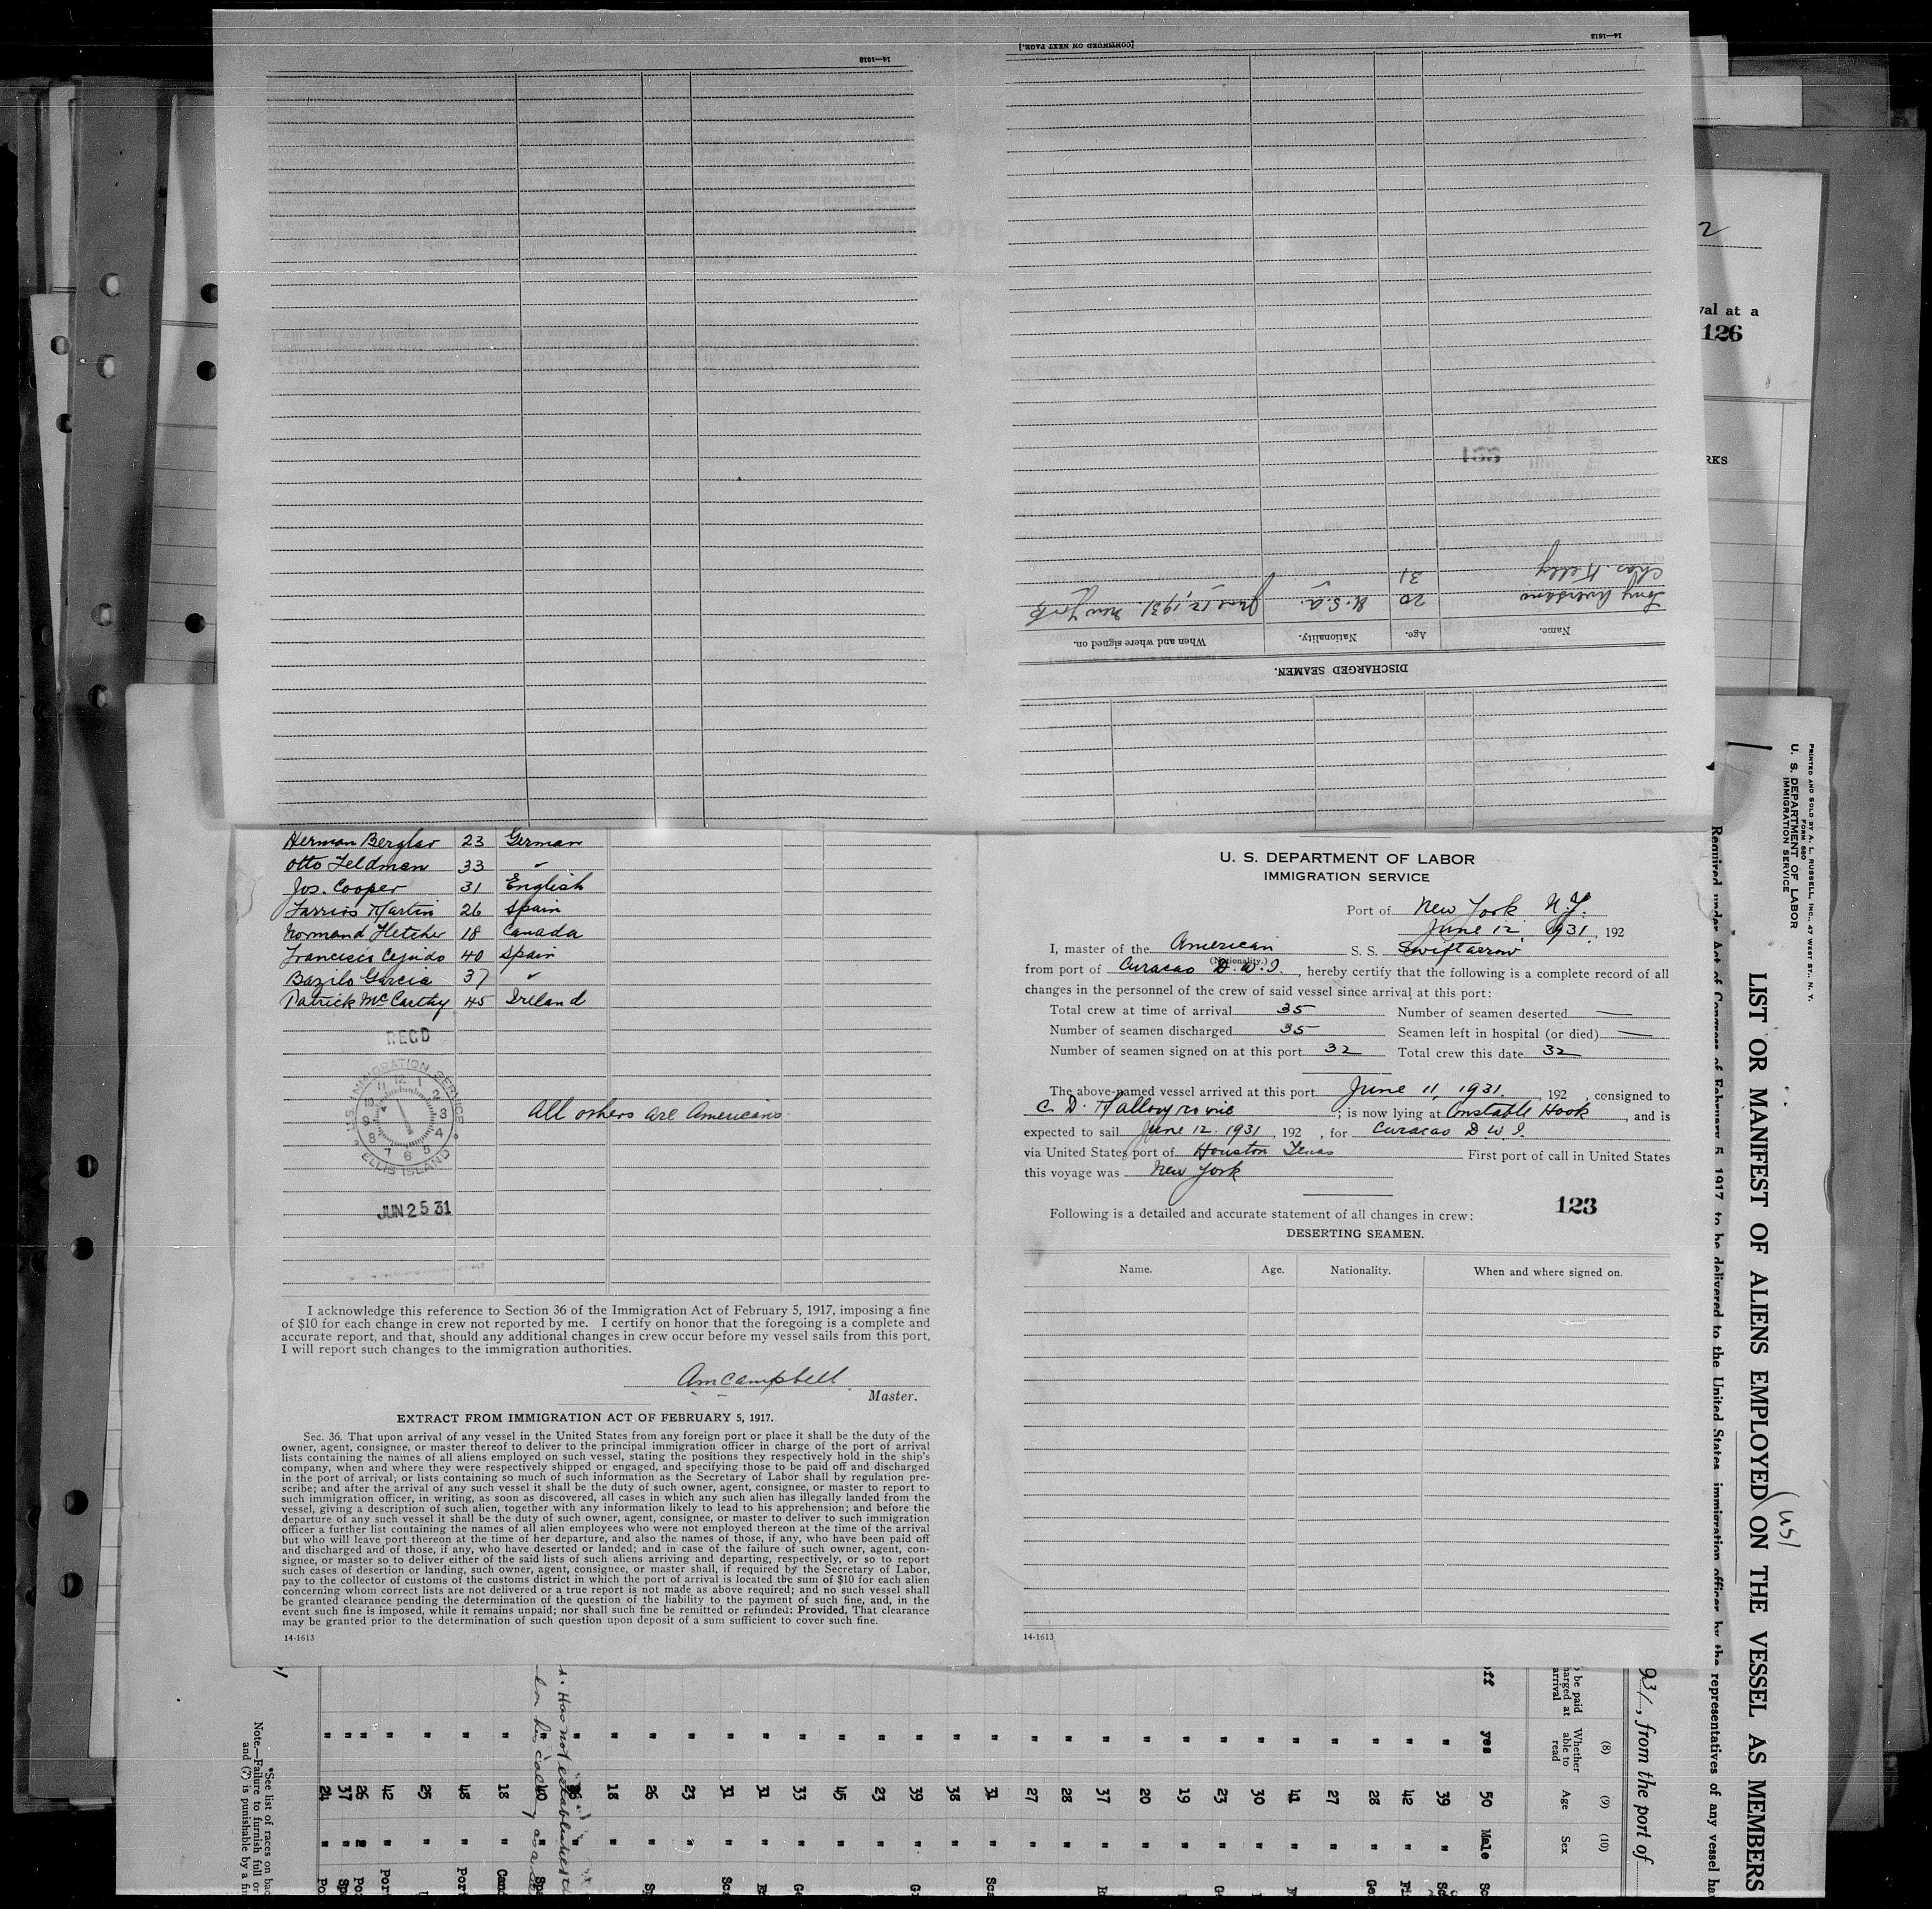 14—1613
[CONTINUED ON NEXT PAGE.]
14—1613
DISCHARGED SEAMEN.
Name. Age. Nationality. When and where signed on.
Tony Aversano 20 U.S.A. June 12, 1931. New York
Chas. Kelly 31
2
val at a
126
RKS
Herman Berglar 23 German
Otto Feldman 33 "
Jos. Cooper 31 English
Farrios Martin 26 Spain
Normand Fletcher 18 Canada
Francisco Cejudo 40 Spain
Bazilo Garcia 37 "
Patrick McCarthy 45 Ireland
RECD
U.S. IMMIGRATION SERVICE
ELLIS ISLAND
12 1 2 3 4 5 6 7 8 9 10 11
All others are Americans
JUN 25 31
I acknowledge this reference to Section 36 of the Immigration Act of February 5, 1917, imposing a fine
of $10 for each change in crew not reported by me. I certify on honor that the foregoing is a complete and
accurate report, and that, should any additional changes in crew occur before my vessel sails from this port,
I will report such changes to the immigration authorities.
Am Campbell
Master.
EXTRACT FROM IMMIGRATION ACT OF FEBRUARY 5, 1917.
Sec. 36. That upon arrival of any vessel in the United States from any foreign port or place it shall be the duty of the
owner, agent, consignee, or master thereof to deliver to the principal immigration officer in charge of the port of arrival
lists containing the names of all aliens employed on such vessel, stating the positions they respectively hold in the ship's
company, when and where they were respectively shipped or engaged, and specifying those to be paid off and discharged
in the port of arrival; or lists containing so much of such information as the Secretary of Labor shall by regulation pre-
scribe; and after the arrival of any such vessel it shall be the duty of such owner, agent, consignee, or master to report to
such immigration officer, in writing, as soon as discovered, all cases in which any such alien has illegally landed from the
vessel, giving a description of such alien, together with any information likely to lead to his apprehension; and before the
departure of any such vessel it shall be the duty of such owner, agent, consignee, or master to deliver to such immigration
officer a further list containing the names of all alien employees who were not employed thereon at the time of the arrival
but who will leave port thereon at the time of her departure, and also the names of those, if any, who have been paid off
and discharged and of those, if any, who have deserted or landed; and in case of the failure of such owner, agent, con-
signee, or master so to deliver either of the said lists of such aliens arriving and departing, respectively, or so to report
such cases of desertion or landing, such owner, agent, consignee, or master shall, if required by the Secretary of Labor,
pay to the collector of customs of the customs district in which the port of arrival is located the sum of $10 for each alien
concerning whom correct lists are not delivered or a true report is not made as above required; and no such vessel shall
be granted clearance pending the determination of the question of the liability to the payment of such fine, and, in the
event such fine is imposed, while it remains unpaid; nor shall such fine be remitted or refunded: Provided, That clearance
may be granted prior to the determination of such question upon deposit of a sum sufficient to cover such fine.
14-1613
U. S. DEPARTMENT OF LABOR
IMMIGRATION SERVICE
Port of New York N.Y.
June 12, 1931, 192
I, master of the American S. S. Swiftarrow
(Nationality.)
from port of Curacao D.W.I., hereby certify that the following is a complete record of all
changes in the personnel of the crew of said vessel since arrival at this port:
Total crew at time of arrival 35 Number of seamen deserted —
Number of seamen discharged 35 Seamen left in hospital (or died) —
Number of seamen signed on at this port 32 Total crew this date 32
The above-named vessel arrived at this port June 11, 1931, 192 , consigned to
C. D. Mallory ; is now lying at Constable Hook, and is
expected to sail June 12. 1931, 192 , for Curacao D W I.
via United States port of Houston Texas First port of call in United States
this voyage was New York
123
Following is a detailed and accurate statement of all changes in crew:
DESERTING SEAMEN.
Name. Age. Nationality. When and where signed on.
14-1613
PRINTED AND SOLD BY A. L. RUSSELL, INC., 47 WEST ST., N. Y.
FORM 680
U. S. DEPARTMENT OF LABOR
IMMIGRATION SERVICE
LIST OR MANIFEST OF ALIENS EMPLOYED ON THE VESSEL AS MEMBERS
(us)
Required under Act of Congress of February 5, 1917, to be delivered to the United States immigration officer by the representatives of any vessel ha
931, from the port of
(8) (9) (10)
be paid
harged at
arrival
Whether
able to
read
Age
Sex
off yes 50 Male Sc
" 39 " Sc
" 42 " Fi
" 28 " Ge
" 27 "
" 41 "
" 30 "
" 23 " G
" 19 "
" 20 "
" 37 "
" 28 "
" 27 "
" 31 " Sca
" 38 "
" 39 " G
" 23 "
" 45 "
" 33 " Ge
" 31 " E
" 31 " Sc
" 23 "
" 26 " S
" 18 "
Has not established
" 40 " Spa
" 18 " Can
" 48 " Por
" 25 "
" 42 " Por
" 26 " Po
" 37 " Sp
" 24 " Po
*See list of races on bac
Note.—Failure to furnish full or
and (7) is punishable by a fin